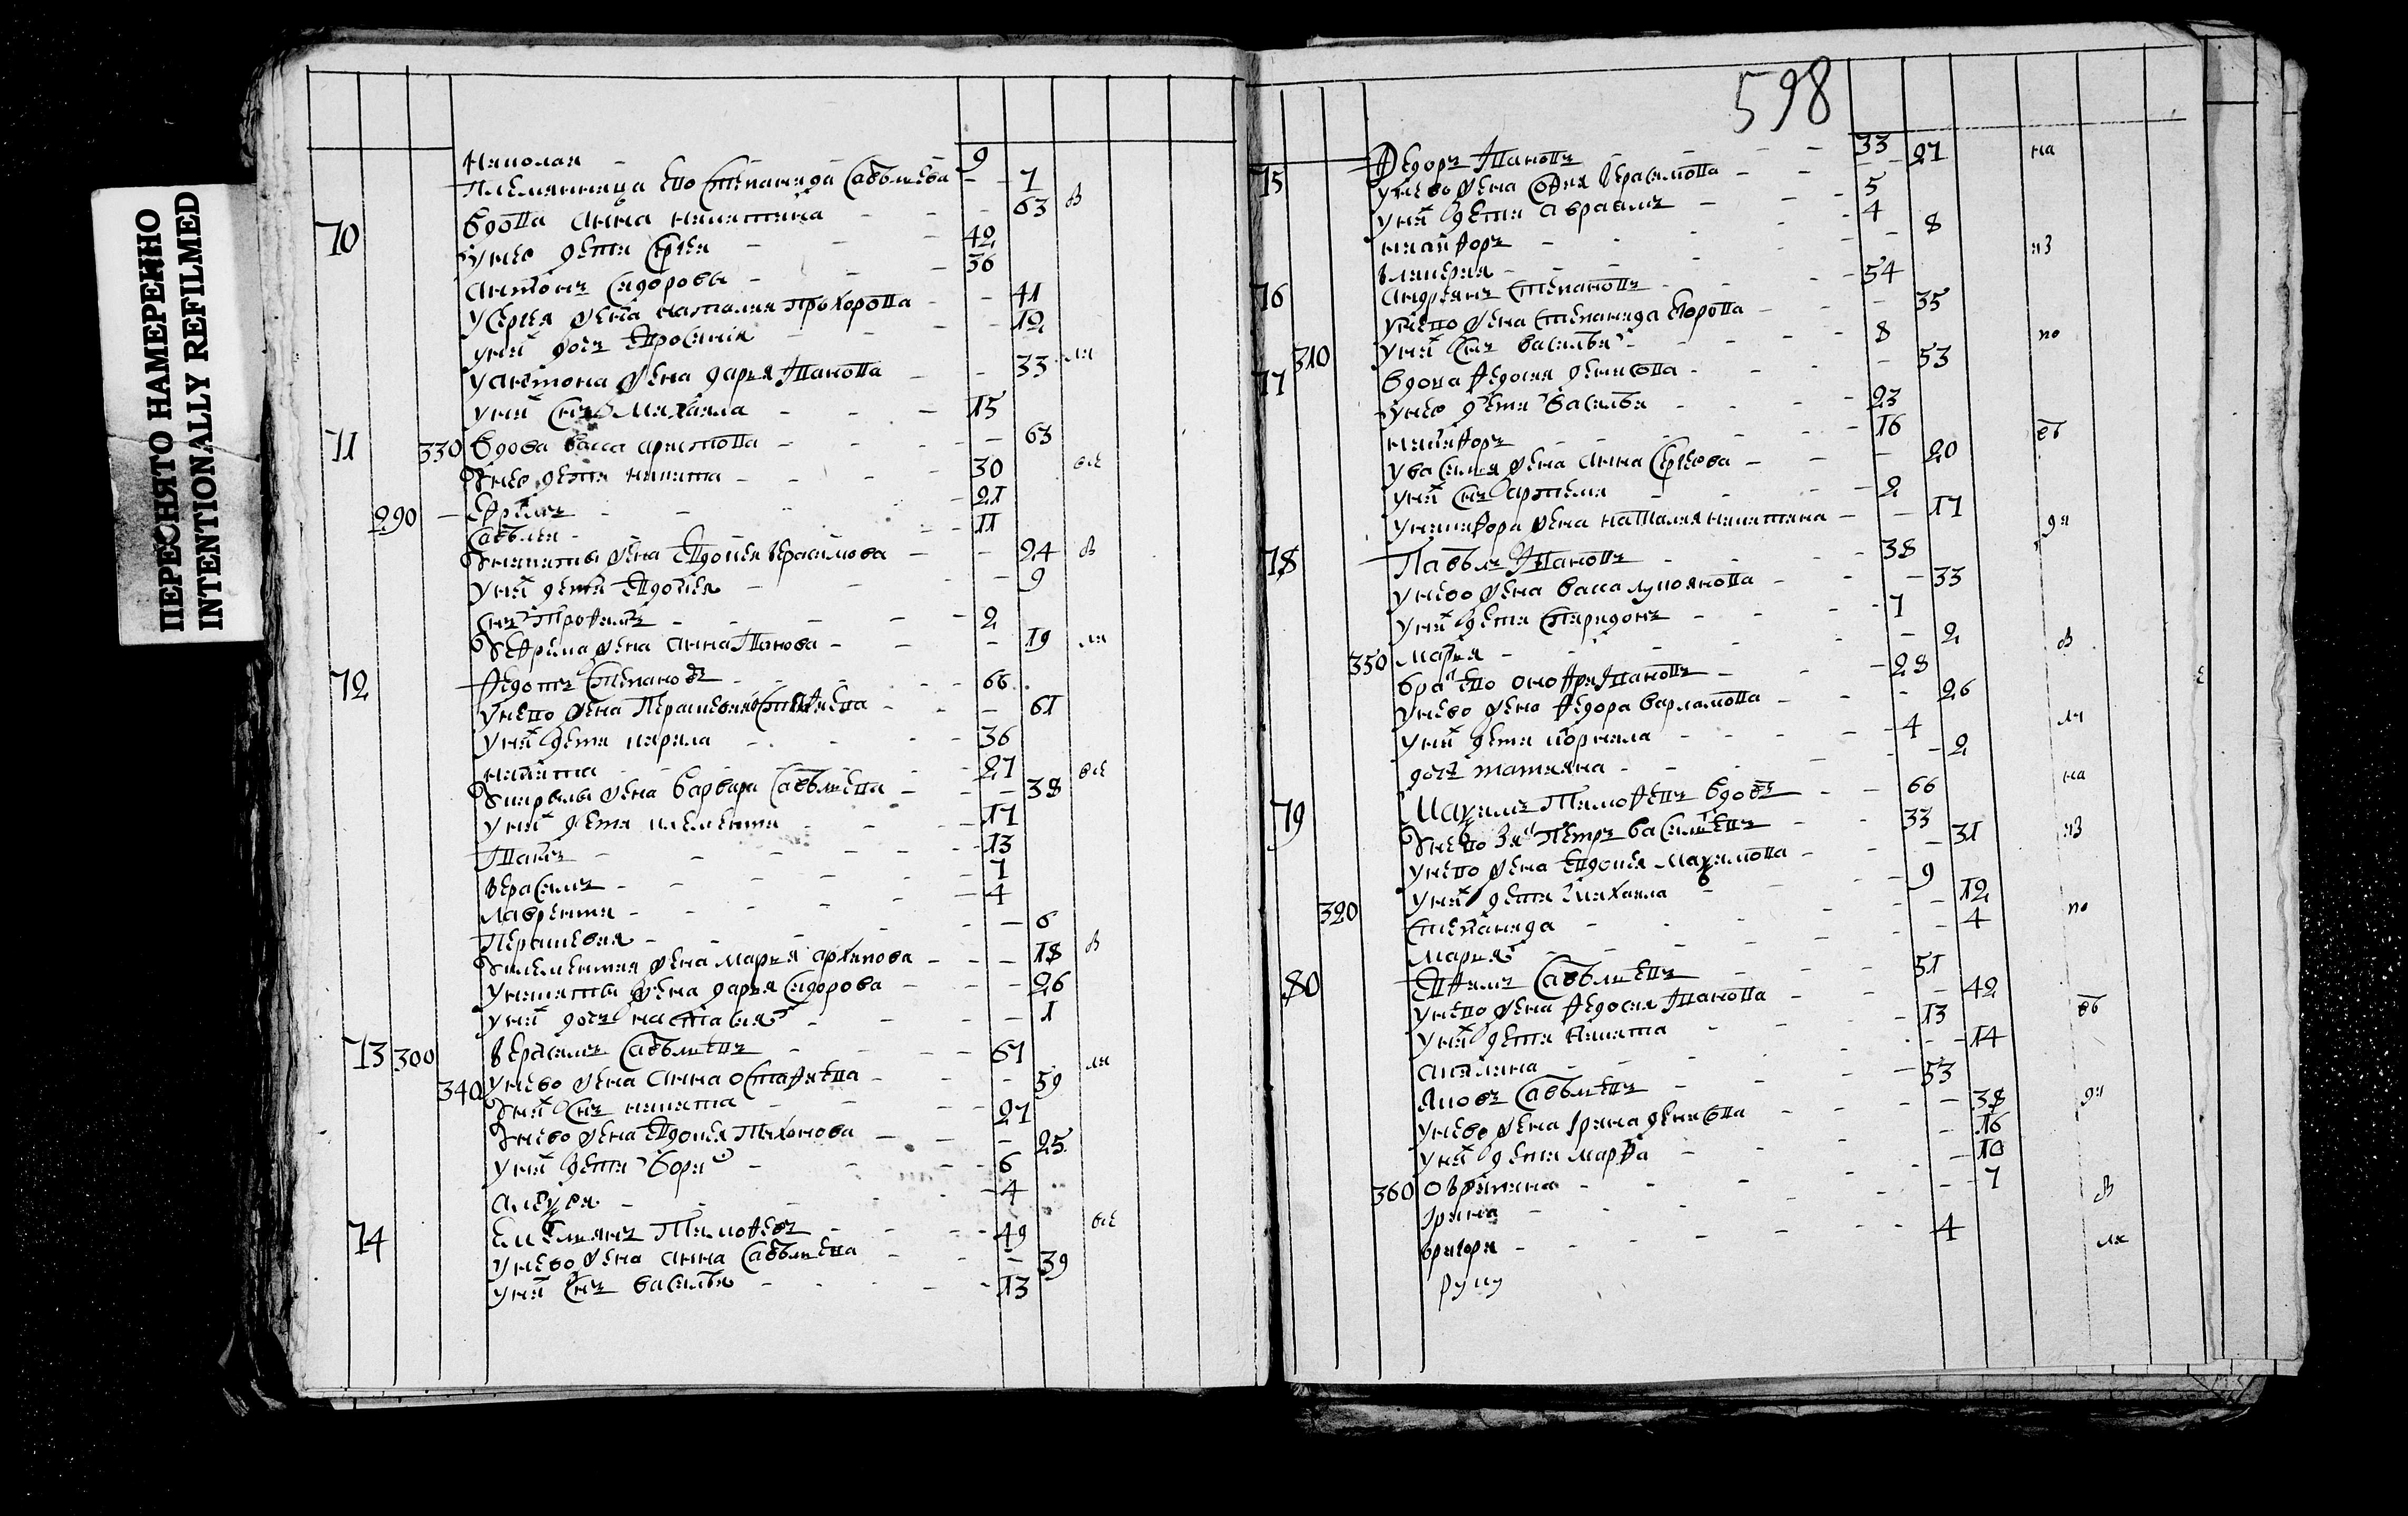 ПЕРЕСНЯТО НАМЕРЕННО
INTENTIONALLY REFILMED
Николаи 9
Племянница ево Степанида Савельева 7
70 вдова Анна Никитина 63 в
у нее дети Сергеи 42
Антонъ Сидоровы 36
у Сергея жена Наталия Прохорова 41
у них дочь Ефросиния 12
у Антона жена Дарья Иванова 33 ли
у них снъ Михаила 15
71 330 вдова Васса 63
у нее дети Никита 30 все
290 Ефримъ 21
Савелеи 11
у Никиты жена Евдокея Герасимова 24 в
у них дети Евдокея 9
снъ Трофимъ 2
у Ефрима жена Анна Иванова 19 ли
72 Федотъ Степановъ 66
у нево жена Парасковия 61
у них дети Кирила 36
Никита 27
у Кирилы жена Варвара Савельева 38 все
у них дети Клементи 17
Иванъ 13
Герасимъ 7
Лаврентеи 4
Парасковия 6
у Клементия жена Марья Архипова 18 в
у Никиты жена Дарья Сидорова 26
у них дочь Настасия 1
73 300 Герасимъ Савельевъ 67
340 у нево жена Анна Остафьева 59 ли
у них снъ Никита 27
у нево жена Евдокея Тихонова 25
у них дети Борис 6
Алексеи 4
74 Емельянъ Тимофеевъ 49 все
у нево жена Анна Савельева 39
у них снъ Василеи 13
598
75 Федоръ Ивановъ 33 на
у нево жена София Герасимова 27
у них дети Авраамъ 5
Никифоръ 4
Гликерия 8
76 Андреянъ Степановъ 54 из
у нево жена Степанида Егорова 35
310 у них снъ Василеи 8
77 вдова Федосия Денисова 53 по
у нее дети Василеи 23
Никифоръ 16
у Василия жена Анна Сергеева 20
у них снъ Артемеи 2
у Никифора жена Наталия Никитина 17
78 Павелъ Ивановъ 38
у нево жена Васса Лукоянова 33
у них дети Спиридонъ 7
350 Марья 2 в
брат ево Онофреи Ивановъ 28
у нево жена Федора Варламова 26
у них дети Корнила 4 ли
дочь Татияна 2
79 Михаилъ Тимофеевъ вдовъ 66 на
у нево зят Петръ Василевъ 33
у нево жена Евдокея Михаилова 31 из
у них дети Михаила 9
320 Степанида 12
Мария 4 по
80 Ефимъ Савельевъ 51
у нево жена Федосия Иванова 42
у них дети Никита 13
Акилина 14
Яковъ Савельевъ 53
у нево жена Ирина Денисова 38
у них дети Марфа 16
360 10
Ирина 7 в
Григореи 4 ли
руку